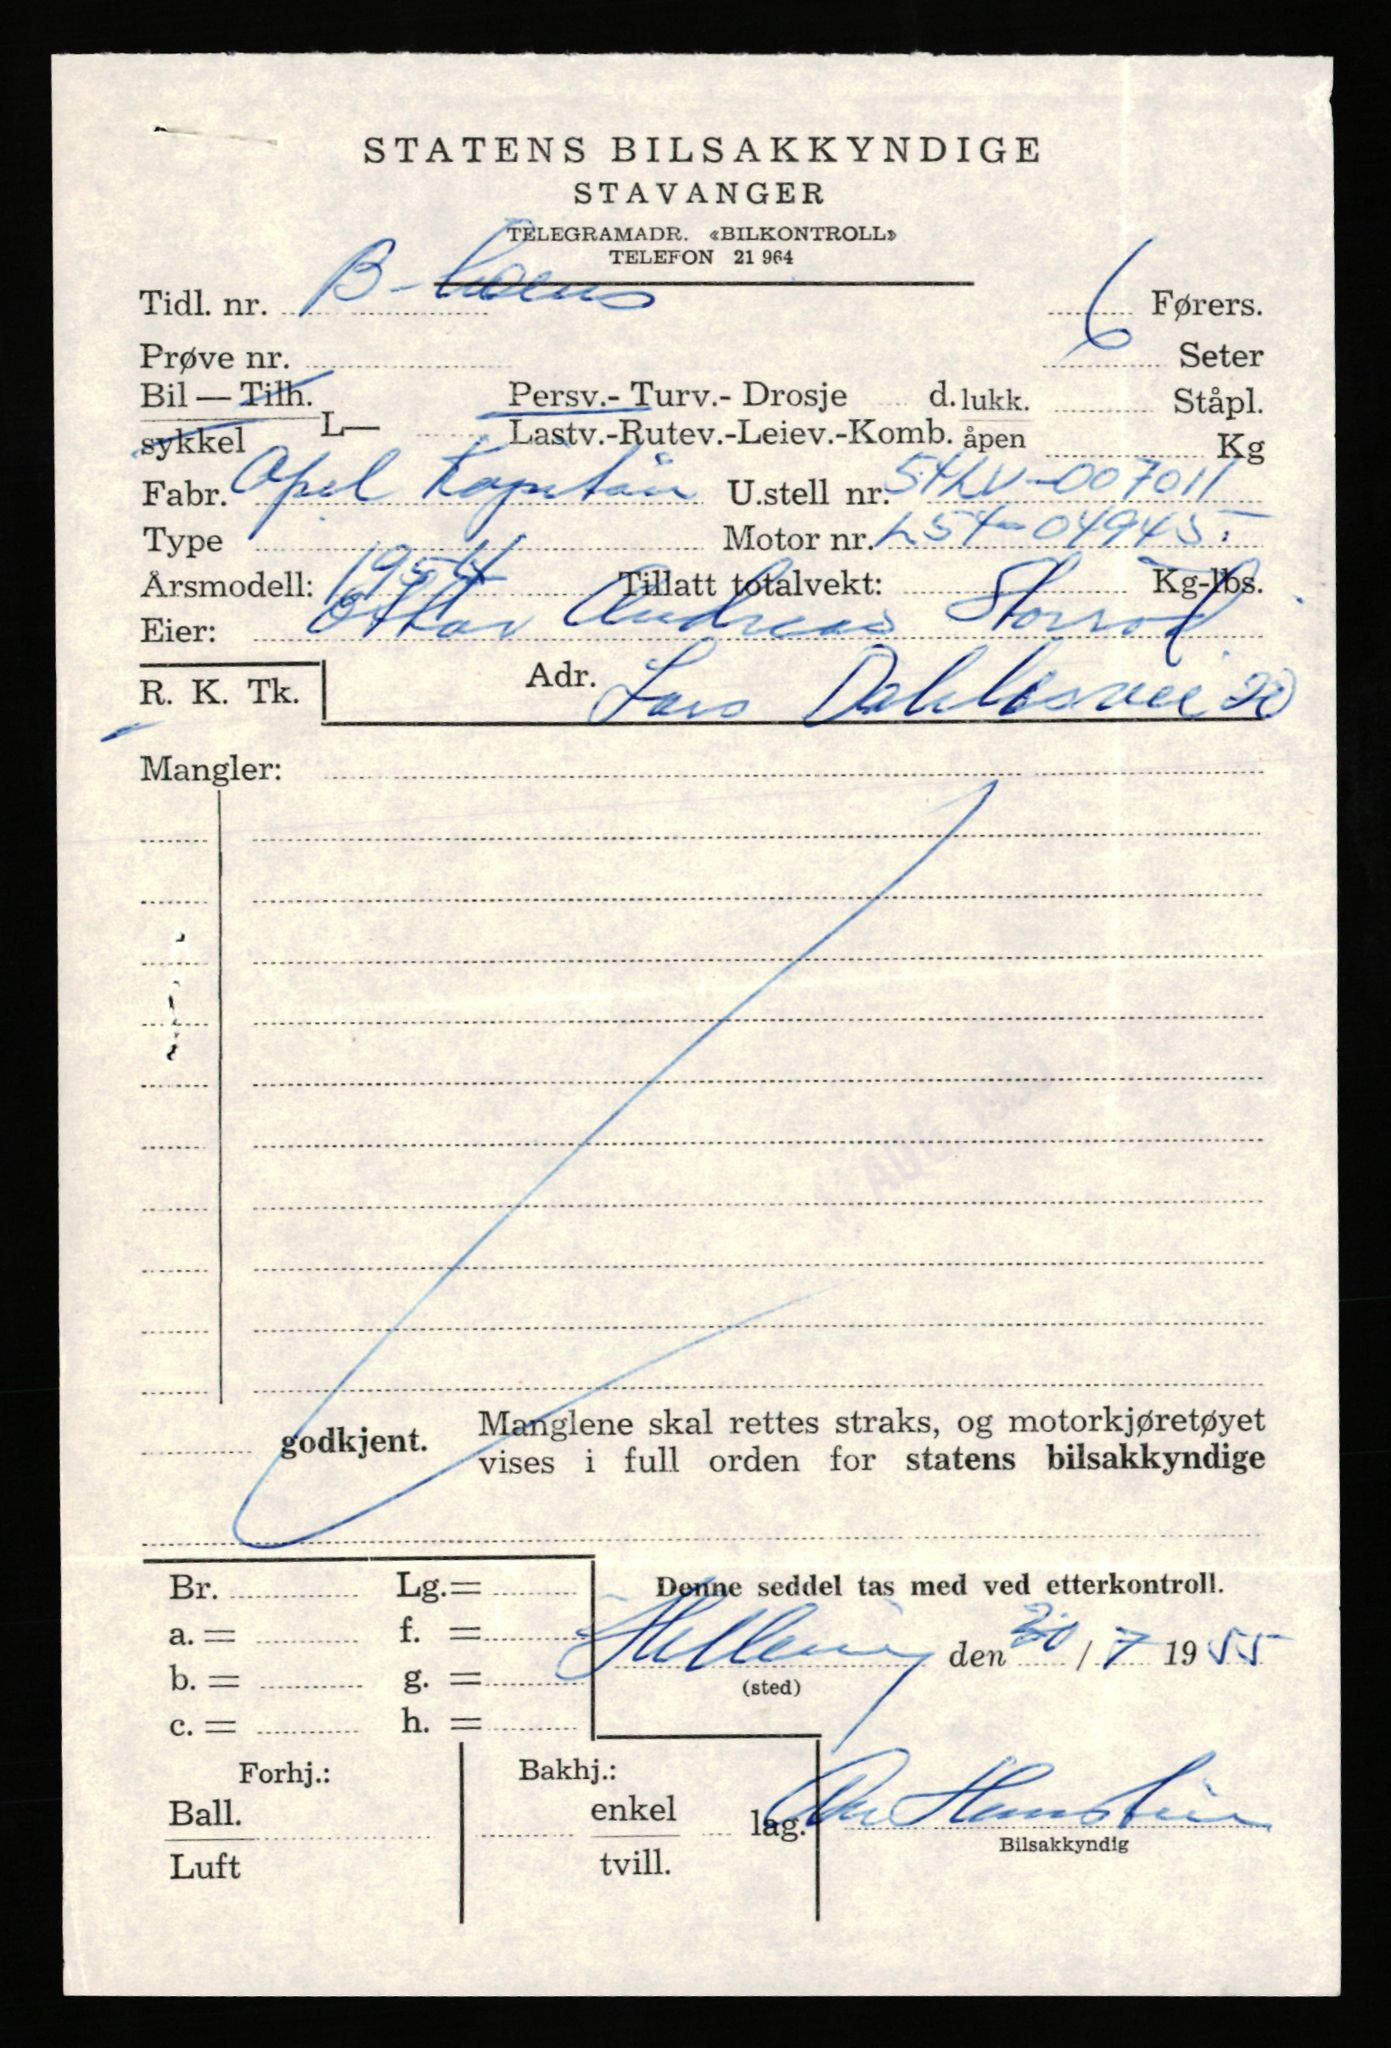 STATENS BILSAKKYNDIGE
STAVANGER
TELEGRAMADR. «BILKONTROLL»
TELEFON 21 964
Tidl. nr. B-lisens 6 Førers.
Prøve nr. Seter
Bil — Tilh. Persv.- Turv.- Drosje d. lukk. Ståpl.
sykkel L— Lastv.-Rutev.-Leiev.-Komb. åpen Kg
Fabr. Opel Kapitän U.stell nr. 54LV-007011
Type Motor nr. L54-04945
Årsmodell: 1954 Tillatt totalvekt: Kg-lbs.
Eier: Oskar Andreas
R. K. Tk. Adr. Lars Dahlesvei 20
Mangler:
AUG. 195
godkjent. Manglene skal rettes straks, og motorkjøretøyet
vises i full orden for statens bilsakkyndige
Br. Lg.= Denne seddel tas med ved etterkontroll.
a. = f. =
den 30/7 1955
b. = g. = (sted)
c. = h. =
Forhj.: Bakhj.:
Ball. enkel lag.
Bilsakkyndig
Luft tvill.